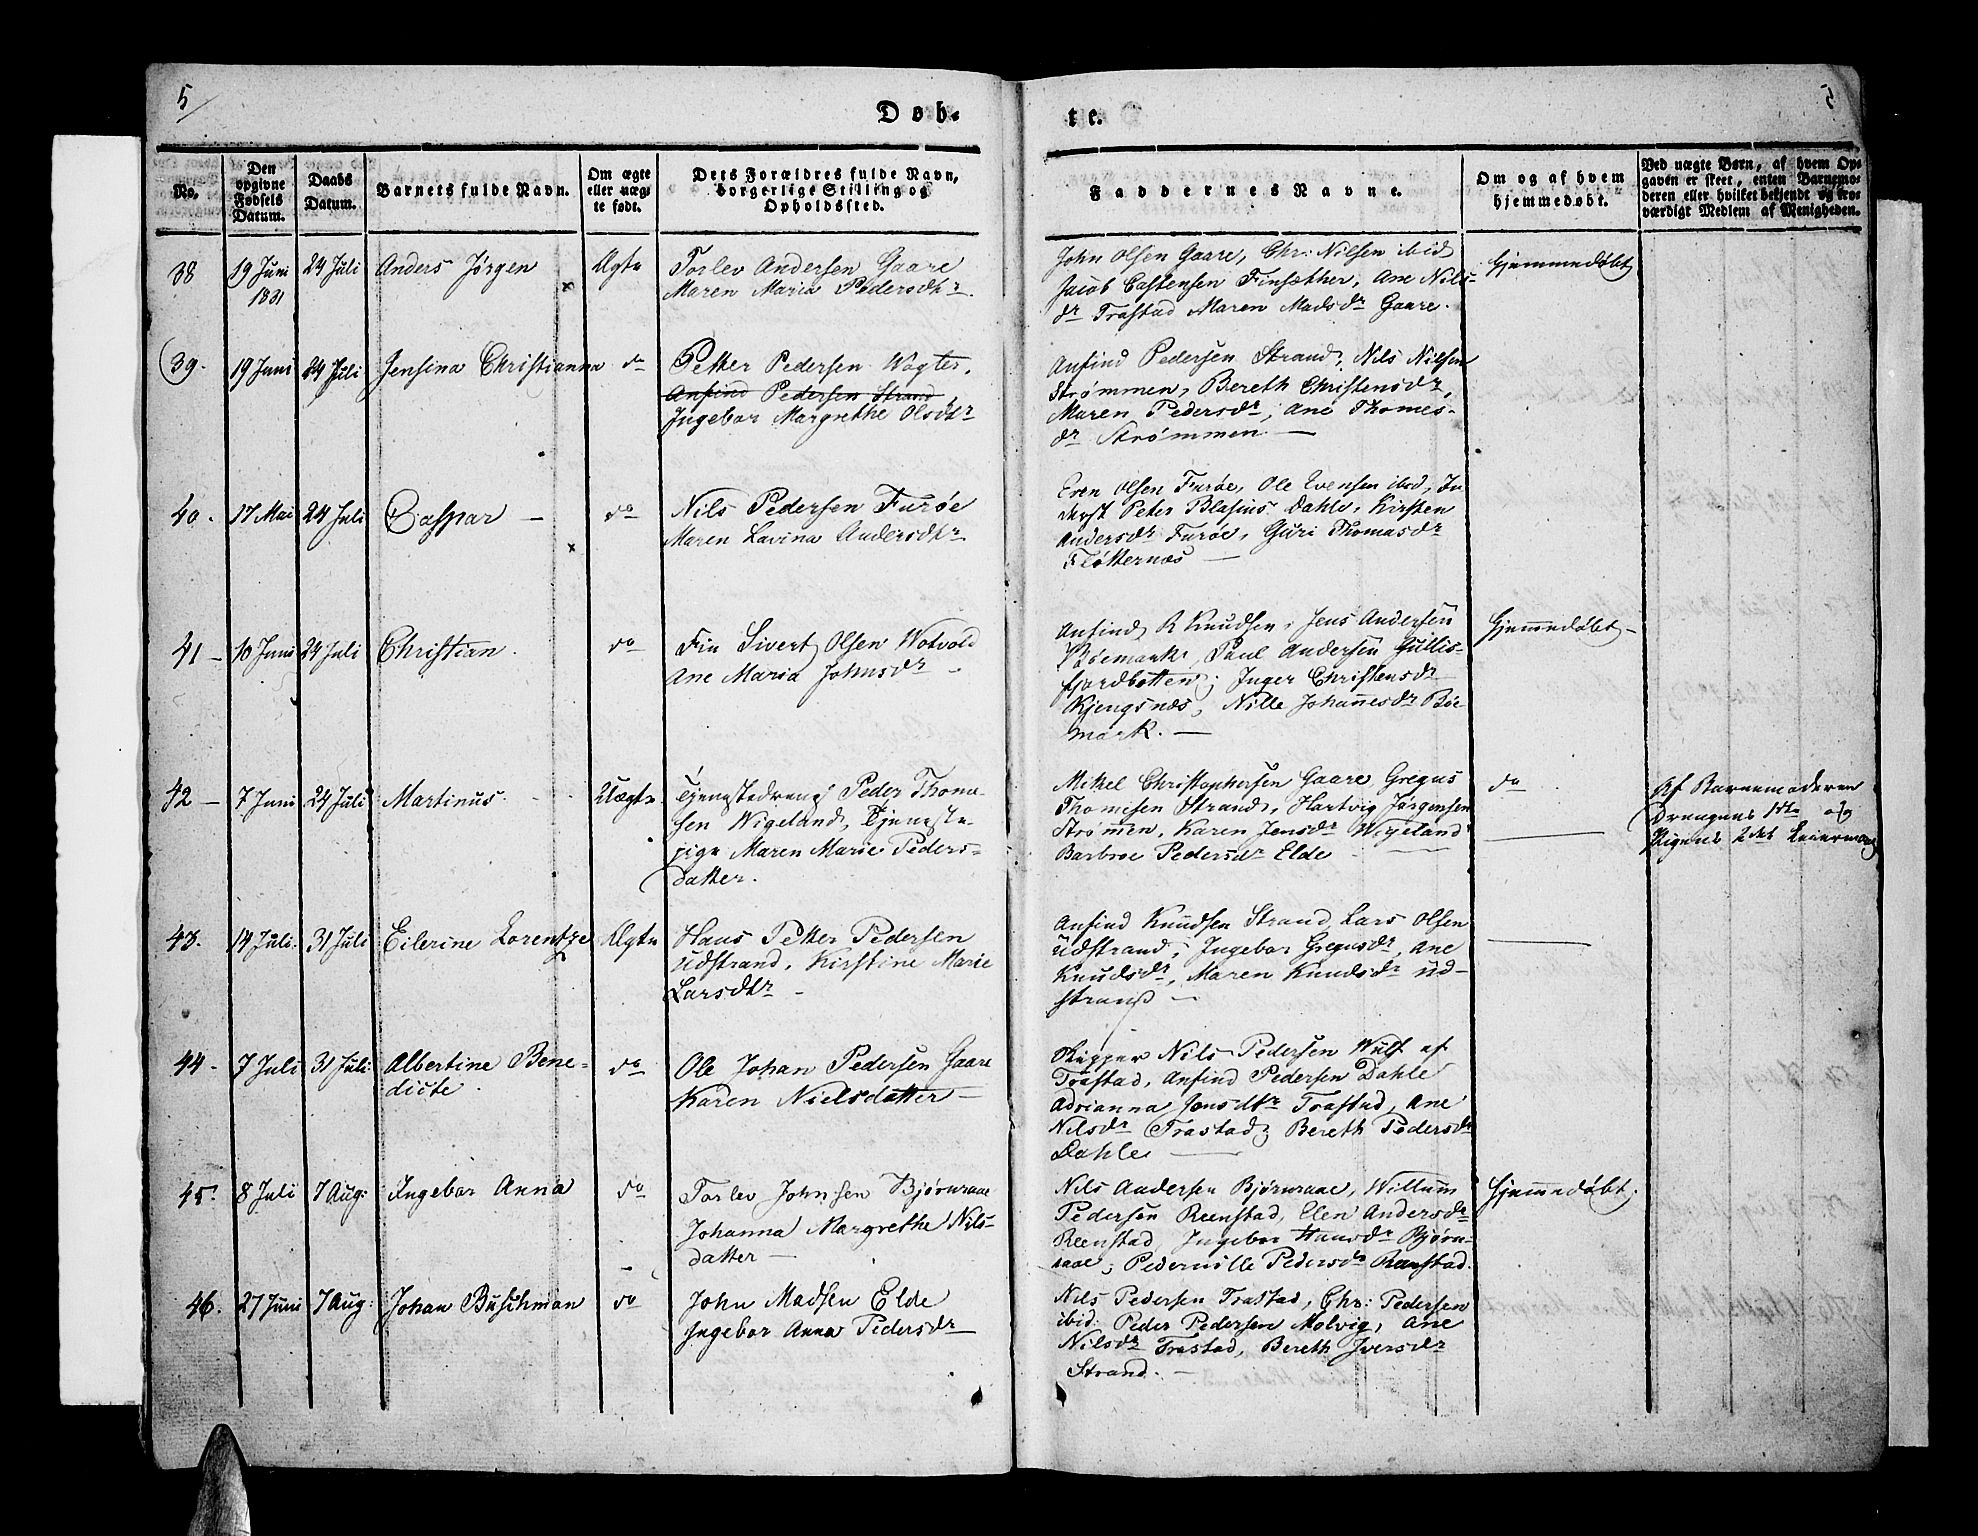 5
Døb-
te.
No.
Den opgivne Fødsels Datum.
Daabs Datum.
Barnets fulde Navn.
Om ægte eller uægte født.
Dets Forældres fulde Navn, borgerlige Stilling og Opholdssted.
Faddernes Navne.
Om og af hvem hjemmedøbt.
Ved uægte Børn, af hvem Opgaven er skeet, enten Barnemoderen eller hvilket bekjendt og troværdigt Medlem af Menigheden.
38
19 Juni 1831
24 Juli
Anders Jørgen
Ægte
Torlev Andersen Gaare
Maren Maria Pedersdtr.
John Olsen Gaare, Chr: Nilsen ibid
Jacob Castensen Finsæther, Ane Nils-
dr Trastad Maren Madsdr Gaare.
Hjemmedøbt
39.
19 Juni
24 Juli
Jensina Christianna
do
Petter Pedersen Vogter,
Anfind Pedersen Strand,
Ingebor Margrethe Olsdtr
Anfind Pedersen Strand, Nils Nilsen
Strømmen, Bereth Christensdr,
Maren Pedersdr, Ane Thomes-
dr Strømmen.
40.
17 Mai
24 Juli
Caspar
do
Nils Pedersen Furøe
Maren Lavina Andersdtr.
Even Olsen Furøe, Ole Evensen ibid,
Peter Blasius Dahle, Kirsten
Andersdr Furøe, Guri Thomasdr
Fløtternæs
41
10 Juni
24 Juli
Christian.
do
Fin Sivert Olsen Votvold
Ane Maria Johnsdr
Anfind R Knudsen, Jens Andersen
Bøemark, Paul Andersen Gullis-
fjordbotten, Inger Christensdr
Kjengsnæs, Nille Johannesdr Bøe
mark.
Hjemmedøbt
42
7 Juni
24 Juli
Martinus.
Uægte
Tjenestedreng Peder Thome-
sen Wigeland, Tjeneste-
pige Maren Marie Peders-
datter.
Mikel Christophersen Gaare Gregus
Thomesen Strand, Hartvig Jørgensen
Strømen, Karen Jensdr Wigeland
Barbroe Pedersdr Elde
do
Af Barnemoderen
Drengens 1te og
Pigens 2det Leiermaal
43.
14 Juli.
31 Juli
Eilerine Lorentze
Ægte
Hans Petter Pedersen
Udstrand, Kirstine Marie
Larsdtr
Anfind Knudsen Strand Lars Olsen
Udstrand, Ingebor Gregusdr, Ane
Knudsdr, Maren Knudsdr Ud-
strand
44.
7 Juli
31 Juli:
Albertine Bene-
dicte.
do
Ole Johan Pedersen Gaare
Karen Nielsdatter
Skipper Nils Pedersen Wulf af
Trastad, Anfind Pedersen Dahle
Adrianna Jensdtr Trastad, Ane
Nilsdr Trastad, Bereth Pedersdr
Dahle
45.
8 Juli
7 Aug:
Ingebor Anna
do
Torlev Johnsen Bjørnraae
Johanna Margrethe Nils-
datter
Nils Andersen Bjørnraae, Willum
Pedersen Reenstad, Elen Andersdr
Reenstad Ingebor Hansdr Bjørn-
raae, Pedernille Pedersdr Reenstad.
Hjemmedøbt.
46.
27 Juni
7 Aug:
Johan Buschman
do
John Madsen Elde
Ingebor Anna Pedersdr
Nils Pedersen Trastad, Chr: Pedersen
ibid: Peder Pedersen Molvig, Ane
Nilsdr Trastad, Bereth Iversdr
Strand.